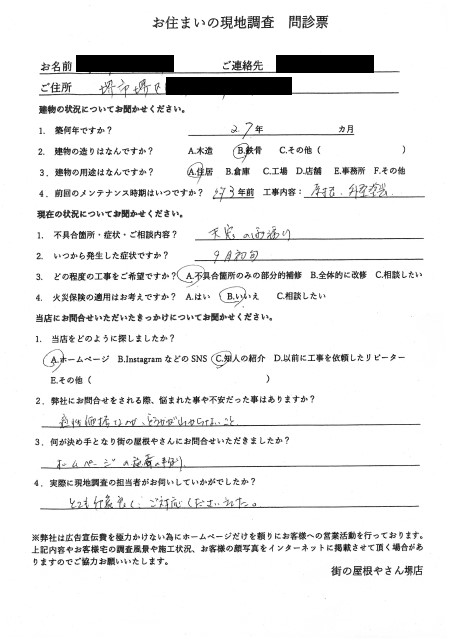 お住まいの現地調査 問診票
お名前 ご連絡先
ご住所 堺市堺区
建物の状況についてお聞かせください。
1. 築何年ですか？ 27年 カ月
2. 建物の造りはなんですか？ A.木造 B.鉄骨 C.その他（ ）
3. 建物の用途はなんですか？ A.住居 B.倉庫 C.工場 D.店舗 E.事務所 F.その他
4. 前回のメンテナンス時期はいつですか？ 約3年前 工事内容： 外壁塗装
現在の状況についてお聞かせください。
1. 不具合箇所・症状・ご相談内容？ 天窓の雨漏り
2. いつから発生した症状ですか？ 9月初旬
3. どの程度の工事をご希望ですか？ A.不具合箇所のみの部分的補修 B.全体的に改修 C.相談したい
4. 火災保険の適用はお考えですか？ A.はい B.いいえ C.相談したい
当店にお問合せいただいたきっかけについてお聞かせください。
1. 当店をどのように探しましたか？
A.ホームページ B.InstagramなどのSNS C.知人の紹介 D.以前に工事を依頼したリピーター
E.その他（ ）
2. 弊社にお問合せをされる際、悩まれた事や不安だった事はありますか？
適正価格なのか、どうかがわからないこと
3. 何が決め手となり街の屋根やさんにお問合せいただきましたか？
ホームページの
4. 実際に現地調査の担当者がお伺いしていかがでしたか？
とても印象良く、ご対応くださいました。
※弊社は広告宣伝費を極力かけない為にホームページだけを頼りにお客様への営業活動を行っております。
上記内容やお客様宅の調査風景や施工状況、お客様の顔写真をインターネットに掲載させて頂く場合があ
りますのでご協力お願いいたします。
街の屋根やさん堺店